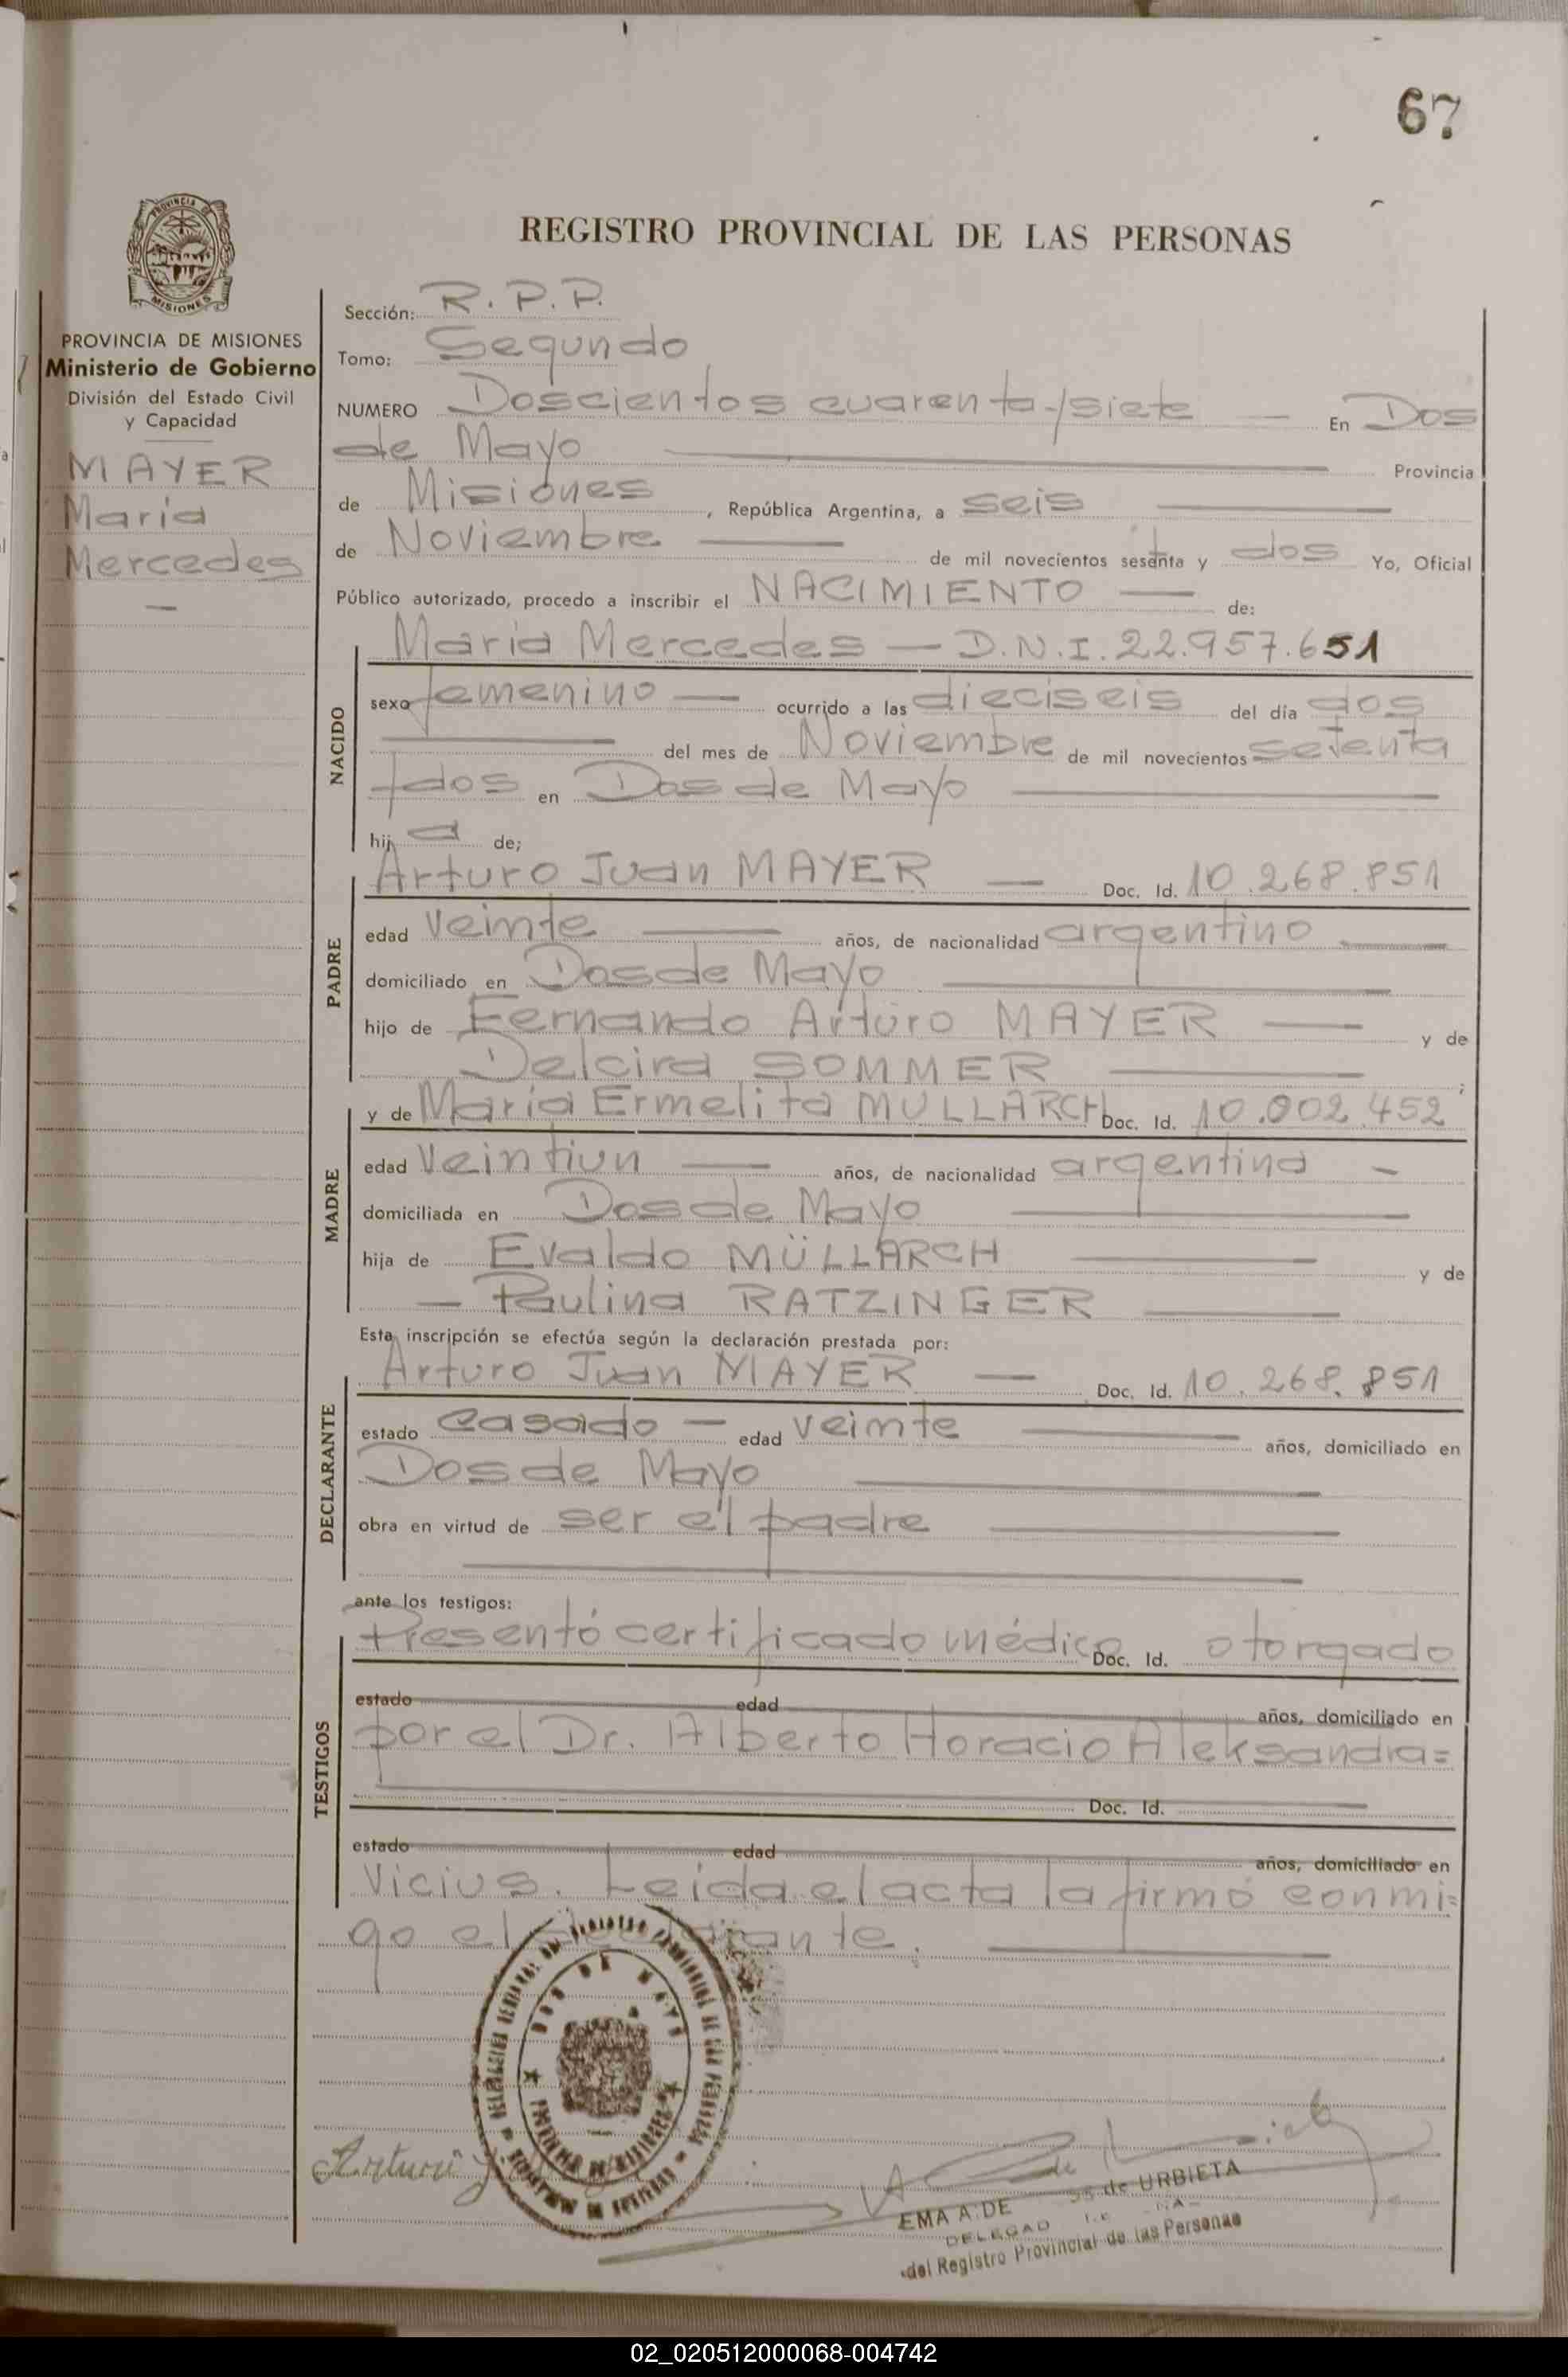 67
REGISTRO PROVINCIAL DE LAS PERSONAS
PROVINCIA DE
MISIONES
PROVINCIA DE MISIONES
Ministerio de Gobierno
División del Estado Civil
y Capacidad
MAYER
María
Mercedes
Sección: R.P.P.
Tomo: Segundo
NUMERO Doscientos cuarenta y siete — En Dos
de Mayo Provincia
de Misiones, República Argentina, a seis
de Noviembre de mil novecientos setenta y dos Yo, Oficial
Público autorizado, procedo a inscribir el NACIMIENTO — de:
NACIDO
María Mercedes — D.N.I. 22.957.651
sexo femenino — ocurrido a las dieciseis del día dos
del mes de Noviembre de mil novecientos setenta
y dos en Dos de Mayo
hija de;
PADRE
Arturo Juan MAYER — Doc. Id. 10.268.851
edad Veinte años, de nacionalidad argentino
domiciliado en Dos de Mayo
hijo de Fernando Arturo MAYER — y de
Delcira SOMMER ;
MADRE
y de María Ermelita MULLARCH Doc. Id. 10.002.452
edad Veintiun — años, de nacionalidad argentina -
domiciliada en Dos de Mayo
hija de Evaldo MÜLLARCH y de
— Paulina RATZINGER
Esta inscripción se efectúa según la declaración prestada por:
DECLARANTE
Arturo Juan MAYER — Doc. Id. 10.268.851
estado casado — edad veinte años, domiciliado en
Dos de Mayo
obra en virtud de ser el padre
ante los testigos:
TESTIGOS
Presentó certificado médico Doc. Id. otorgado
estado edad años, domiciliado en
por el Dr. Alberto Horacio Aleksandra=
Doc. Id.
estado edad años, domiciliado en
Vicius. Leída el acta la firmó conmi=
go el declarante.
DOS DE MAYO
PROVINCIA DE MISIONES
Arturo
EMA A. DE de URBIETA
DELEGAD
del Registro Provincial de las Personas
02_020512000068-004742